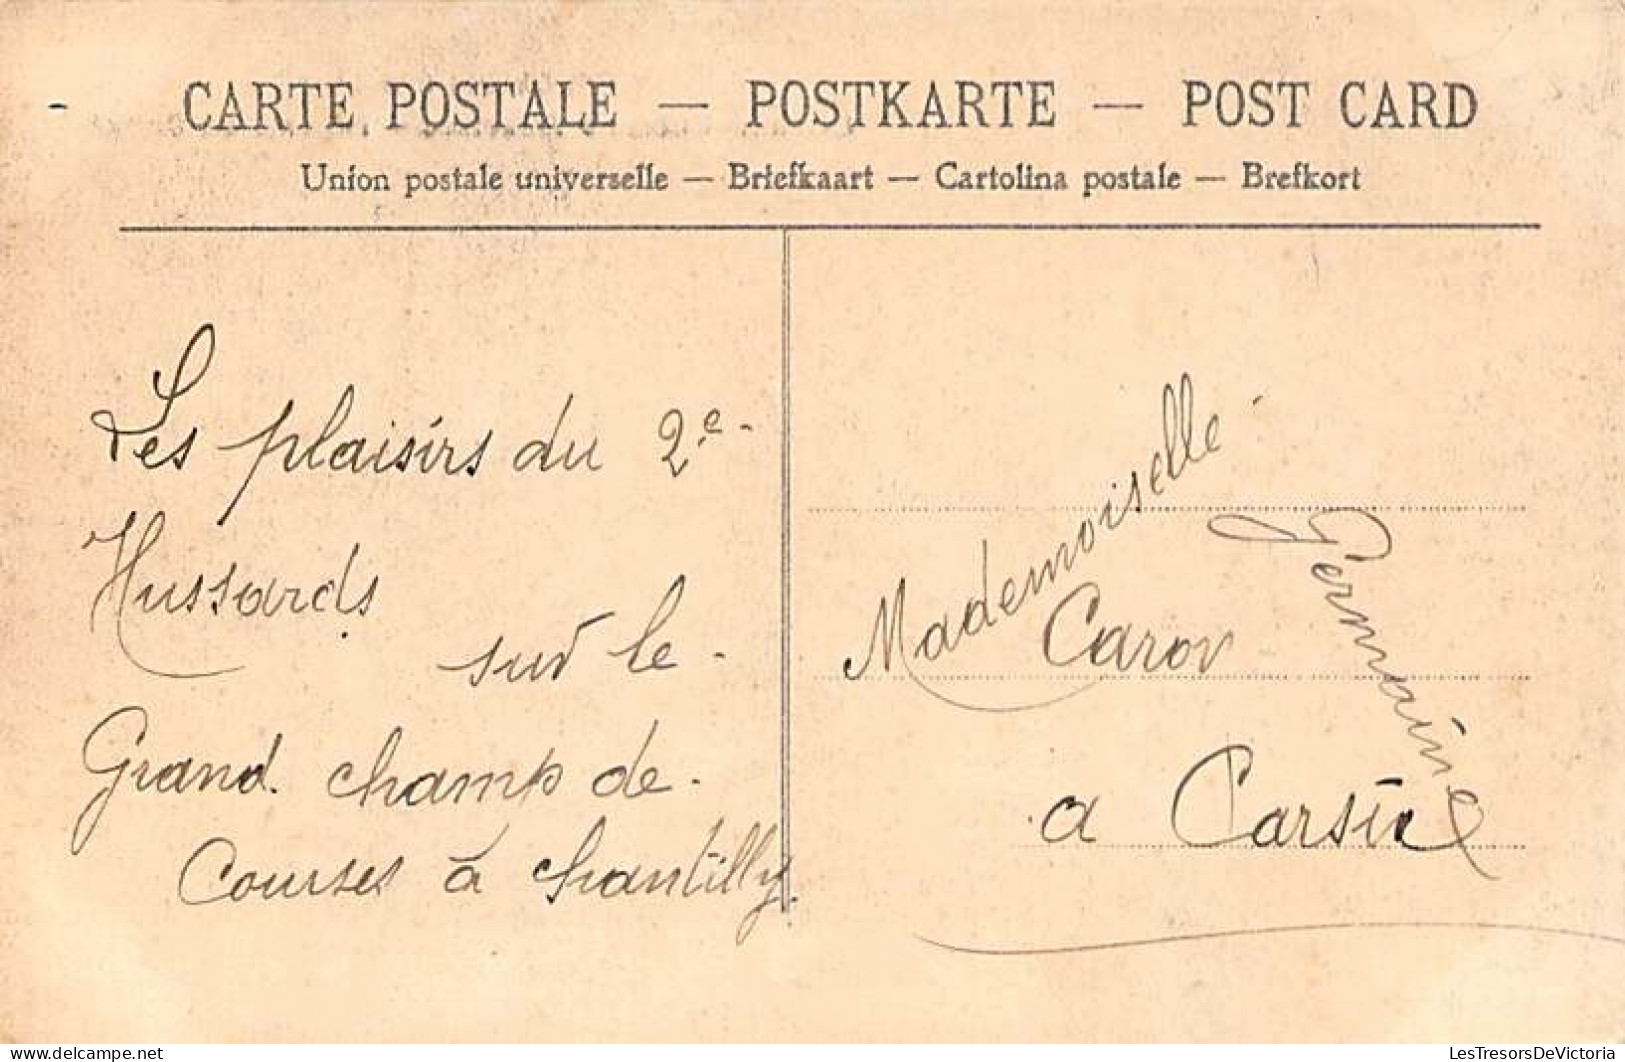 CARTE POSTALE — POSTKARTE — POST CARD
Union postale universelle — Briefkaart — Cartolina postale — Brefkort
Les plaisirs du 2e
Hussards
sur le
Grand champ de
Courses à Chantilly
Mademoiselle
Germaine
Caron
a
LesTresorsDeVictoria